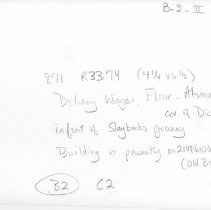 B-2-II
871 R3374 (4¼ x 6½)
Delivery Wagon, Flour,
cor. of
in front of Slayback's grocery
Building is presently on
(Old
B2 C2